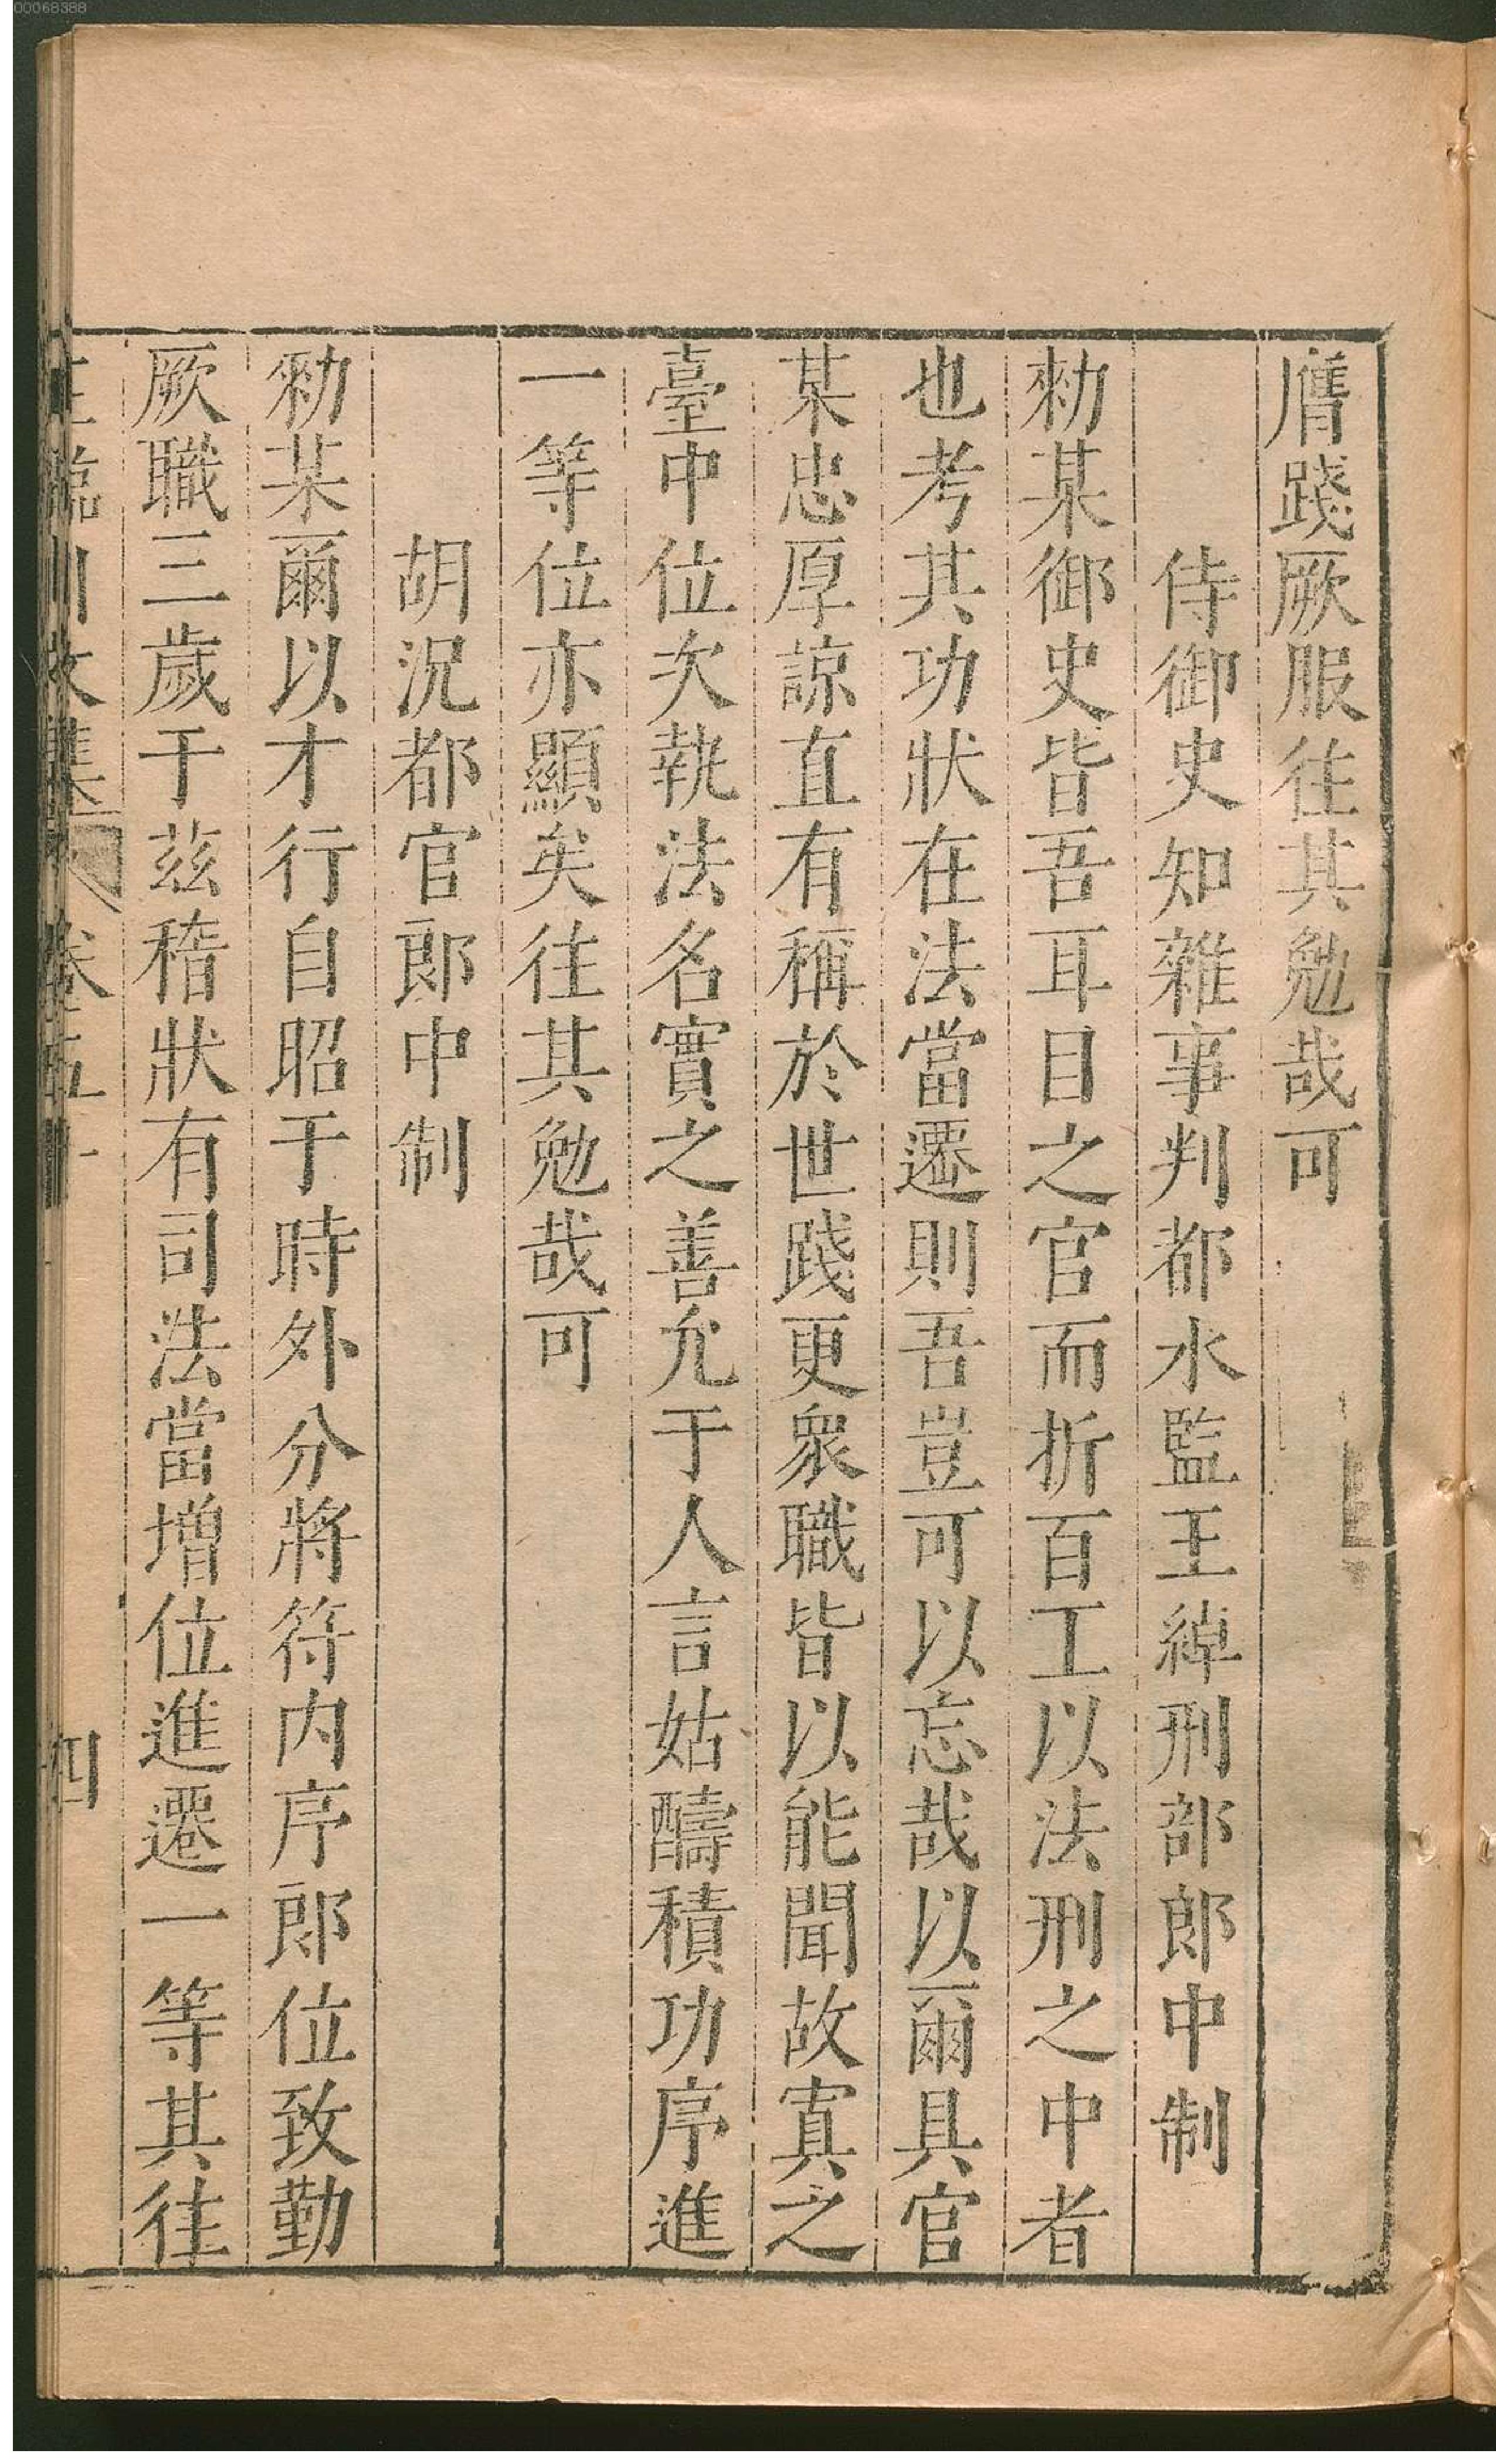 膺踐厥服往其勉哉可
侍御史知雜事判都水監王綽刑部郎中制
勑某御史皆吾耳目之官而折百工以法刑之中者
也考其功狀在法當遷則吾豈可以忘哉以爾具官
某忠厚諒直有稱於世踐更衆職皆以能聞故寘之
臺中位次執法名實之善允于人言姑疇積功序進
一等位亦顯矣往其勉哉可
胡況都官郎中制
勑某爾以才行自昭于時外分將符内序郎位致勤
厥職三歲于茲稽狀有司法當增位進遷一等其往
王臨川文集 卷五十 四
00068388